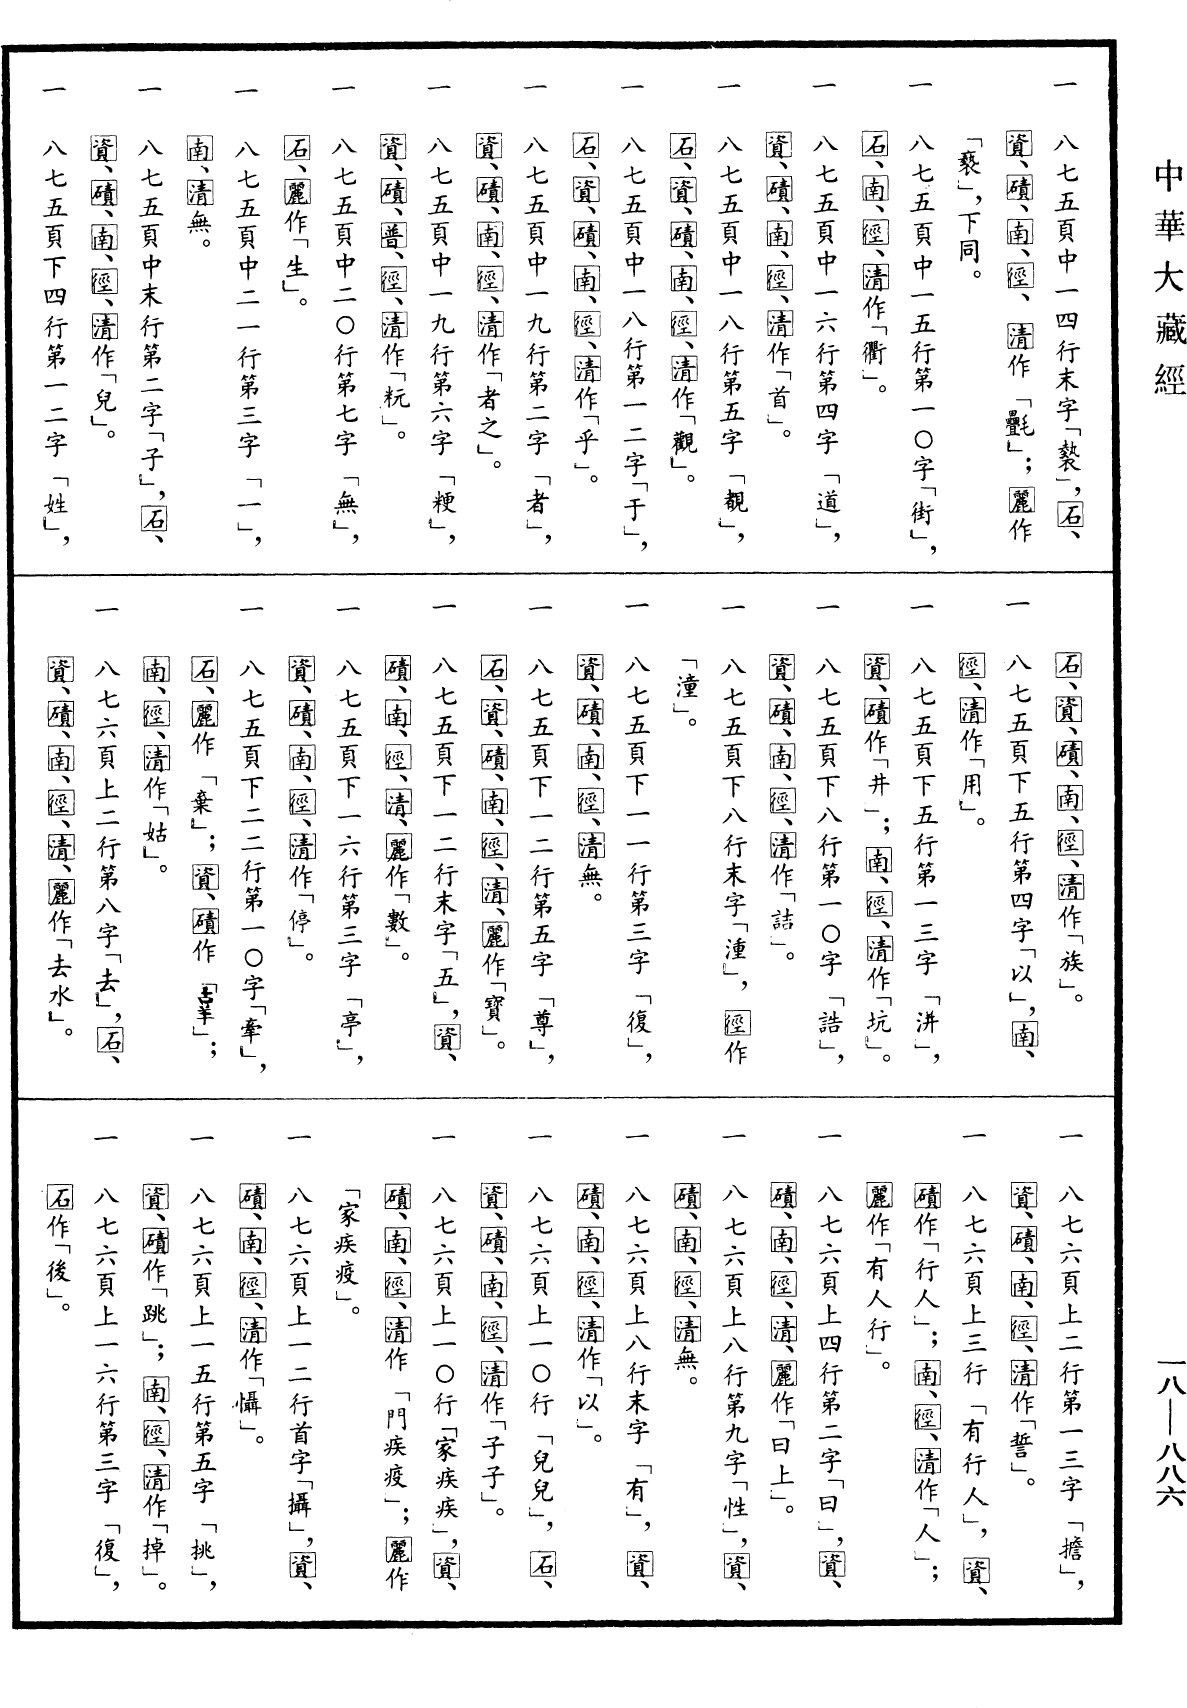 中華大藏經
一八—八八六
一　八七五頁中一四行末字「褻」，石、
資、磧、南、徑、清作「氎」；麗作
「褻」，下同。
一　八七五頁中一五行第一〇字「街」，
石、南、徑、清作「衢」。
一　八七五頁中一六行第四字「道」，
資、磧、南、徑、清作「首」。
一　八七五頁中一八行第五字「覩」，
石、資、磧、南、徑、清作「觀」。
一　八七五頁中一八行第一二字「于」，
石、資、磧、南、徑、清作「乎」。
一　八七五頁中一九行第二字「者」，
資、磧、南、徑、清作「者之」。
一　八七五頁中一九行第六字「粳」，
資、磧、普、徑、清作「粇」。
一　八七五頁中二〇行第七字「無」，
石、麗作「生」。
一　八七五頁中二一行第三字「一」，
南、清無。
一　八七五頁中末行第二字「子」，石、
資、磧、南、徑、清作「兒」。
一　八七五頁下四行第一二字「姓」，
石、資、磧、南、徑、清作「族」。
一　八七五頁下五行第四字「以」，南、
徑、清作「用」。
一　八七五頁下五行第一三字「汫」，
資、磧作「井」；南、徑、清作「坑」。
一　八七五頁下八行第一〇字「誥」，
資、磧、南、徑、清作「詰」。
一　八七五頁下八行末字「湩」，徑作
「潼」。
一　八七五頁下一一行第三字「復」，
資、磧、南、徑、清無。
一　八七五頁下一二行第五字「尊」，
石、資、磧、南、徑、清、麗作「寶」。
一　八七五頁下一二行末字「五」，資、
磧、南、徑、清、麗作「數」。
一　八七五頁下一六行第三字「亭」，
資、磧、南、徑、清作「停」。
一　八七五頁下二二行第一〇字「牽」，
石、麗作「棄」；資、磧作「」；
南、徑、清作「姑」。
一　八七六頁上二行第八字「去」，石、
資、磧、南、徑、清、麗作「去水」。
一　八七六頁上二行第一三字「擔」，
資、磧、南、徑、清作「誓」。
一　八七六頁上三行「有行人」，資、
磧作「行人」；南、徑、清作「人」；
麗作「有人行」。
一　八七六頁上四行第二字「曰」，資、
磧、南、徑、清、麗作「曰上」。
一　八七六頁上八行第九字「性」，資、
磧、南、徑、清無。
一　八七六頁上八行末字「有」，資、
磧、南、徑、清作「以」。
一　八七六頁上一〇行「兒兒」，石、
資、磧、南、徑、清作「子子」。
一　八七六頁上一〇行「家疾疾」，資、
磧、南、徑、清作「門疾疫」；麗作
「家疾疫」。
一　八七六頁上一二行首字「攝」，資、
磧、南、徑、清作「懾」。
一　八七六頁上一五行第五字「挑」，
資、磧作「跳」；南、徑、清作「掉」。
一　八七六頁上一六行第三字「復」，
石作「後」。